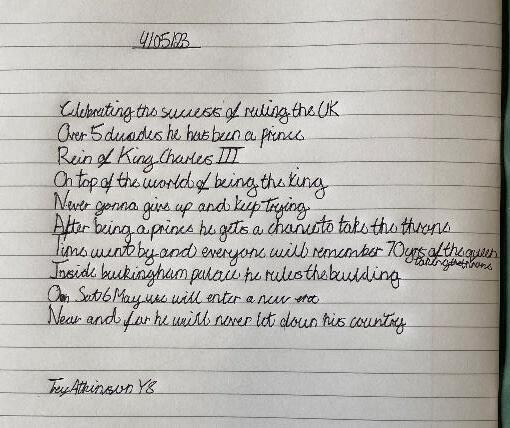 4/05/23
Celebrating the success of ruling the UK
Over 5 decades he has been a prince
Rein of King Charles III
On top of the world of being the king
Never gonna give up and keep trying
After being a prince he gets a chance to take the throne
Time went by and everyone will remember 70 yrs of the queen
taking the throne
Inside buckingham palace he rules the building
On Sat 6 May we will enter a new era
Near and far he will never let down his country
Trey Atkinson Y8